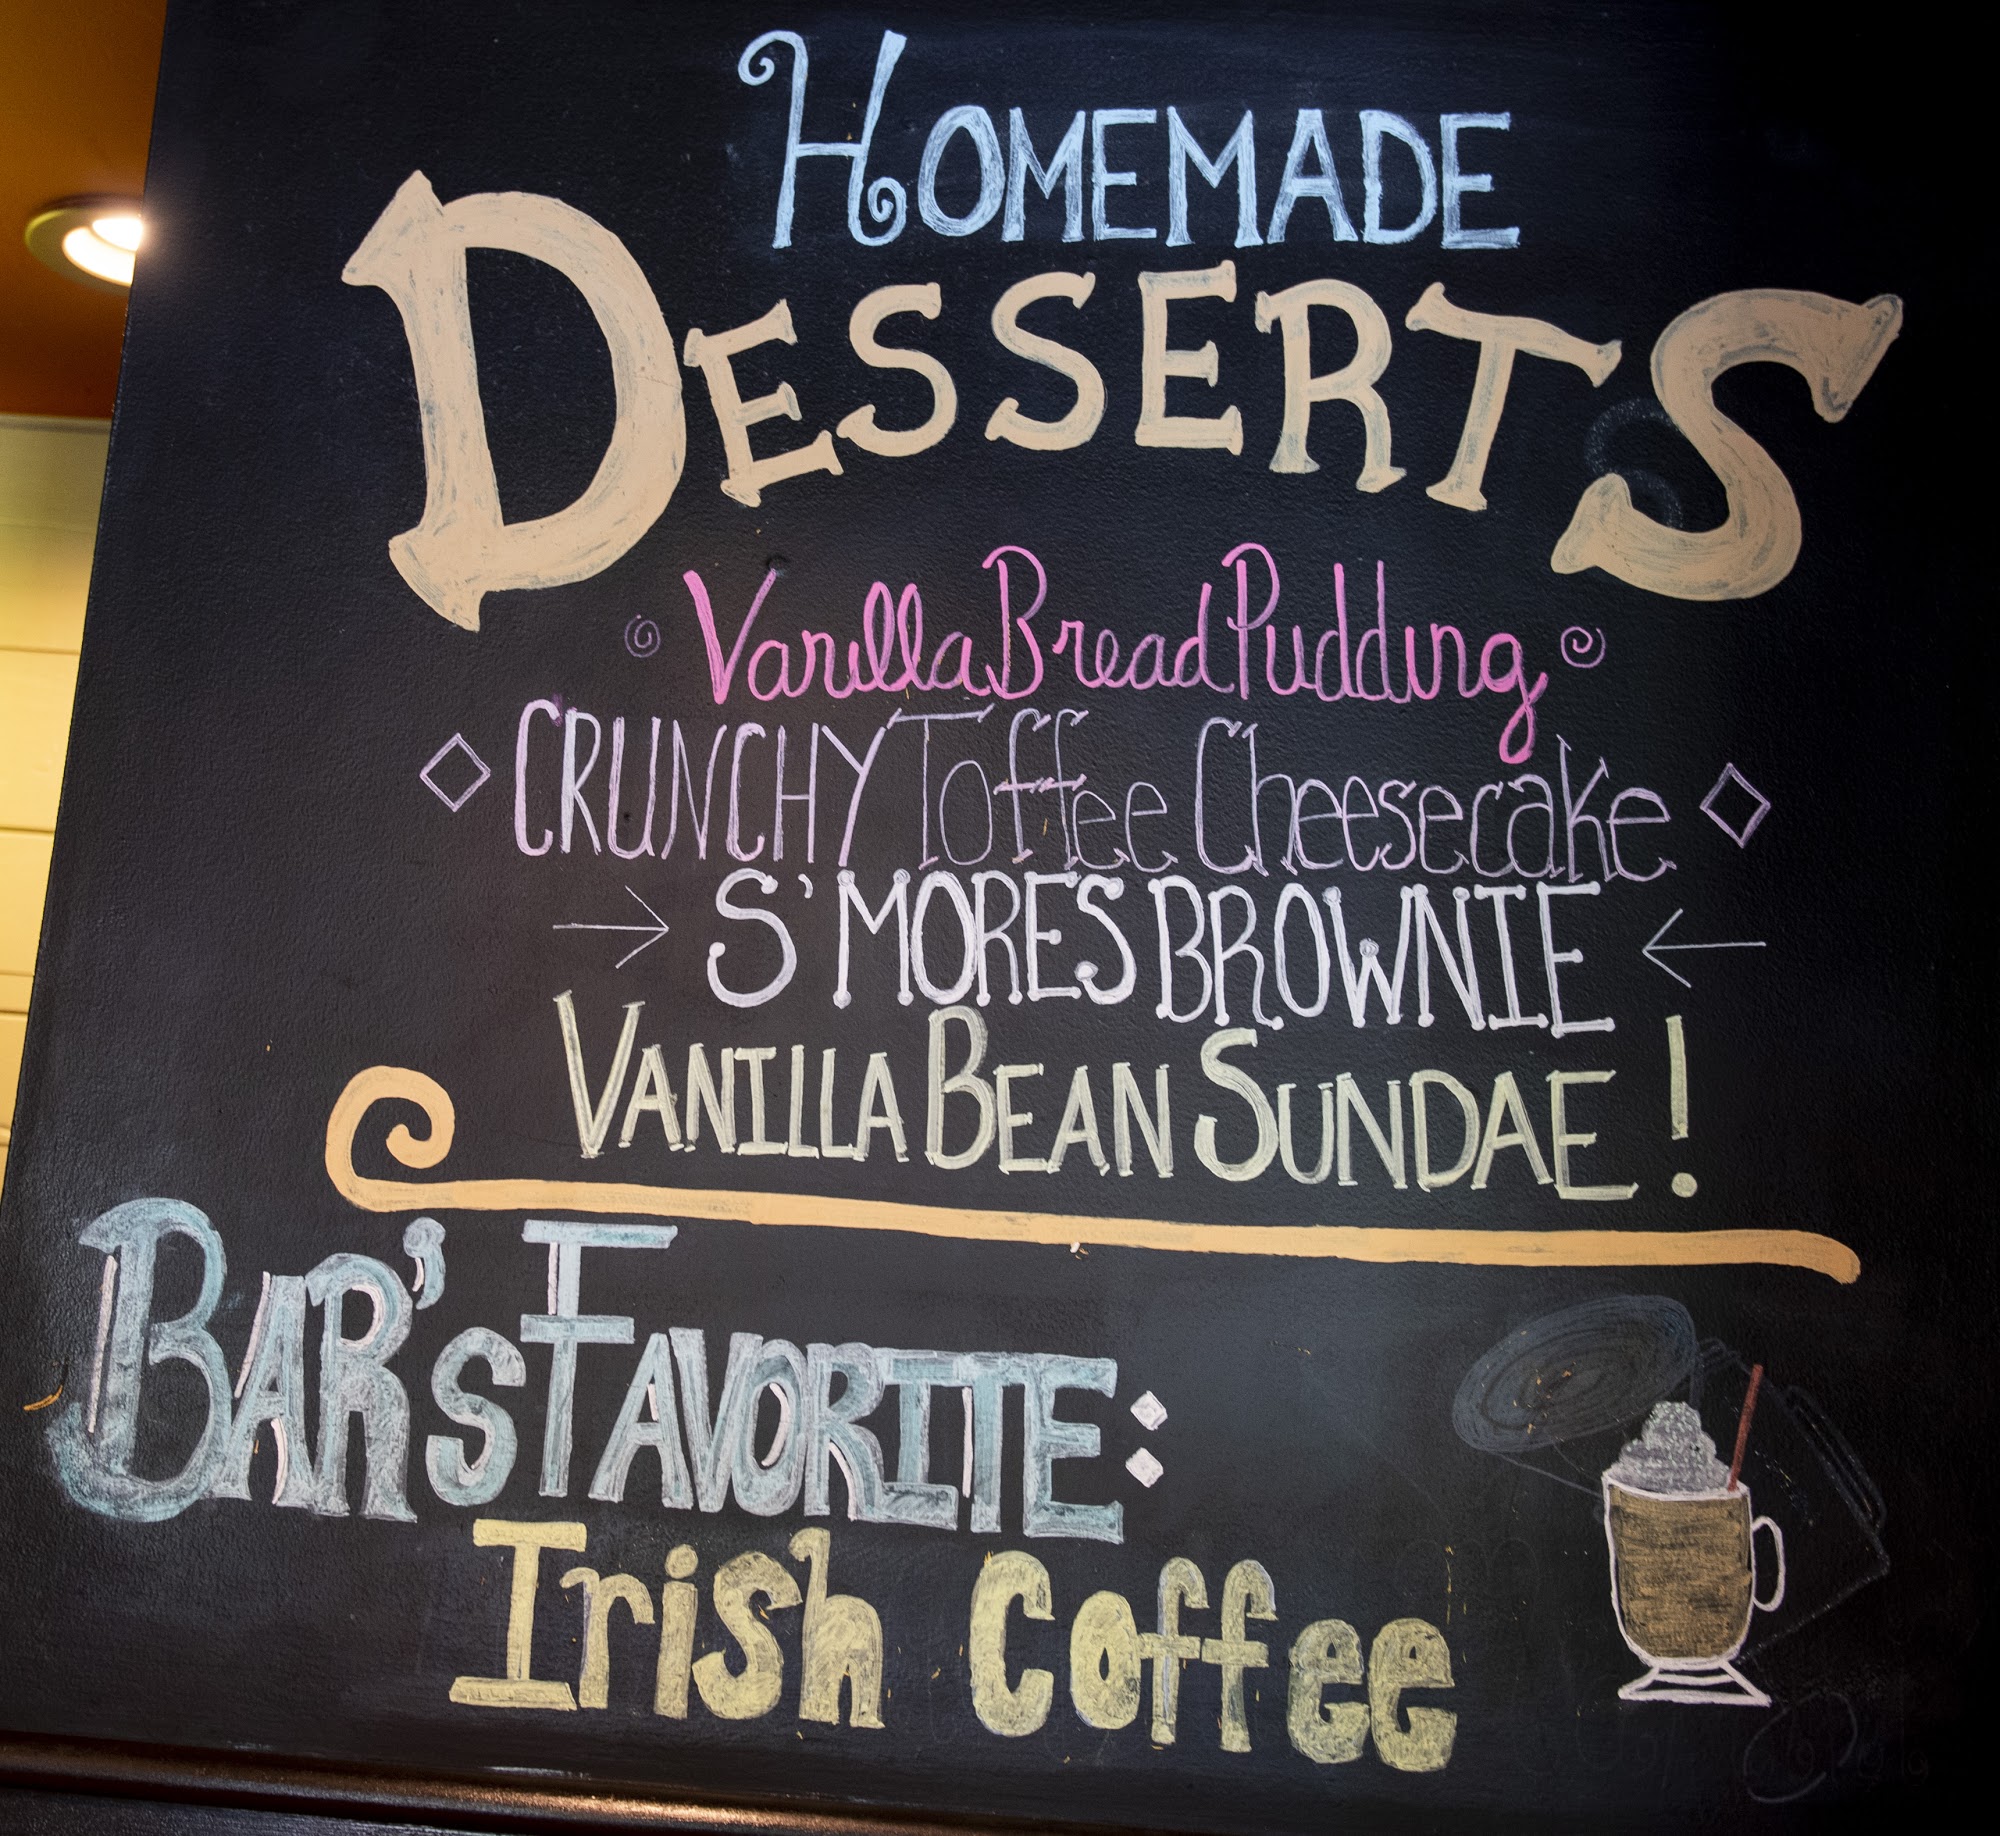 HOMEMADE
DESSERTS
Vanilla Bread Pudding
CRUNCHY Toffee Cheesecake
S'MORES BROWNIE
VANILLA BEAN SUNDAE!
BAR'S FAVORITE:
Irish Coffee